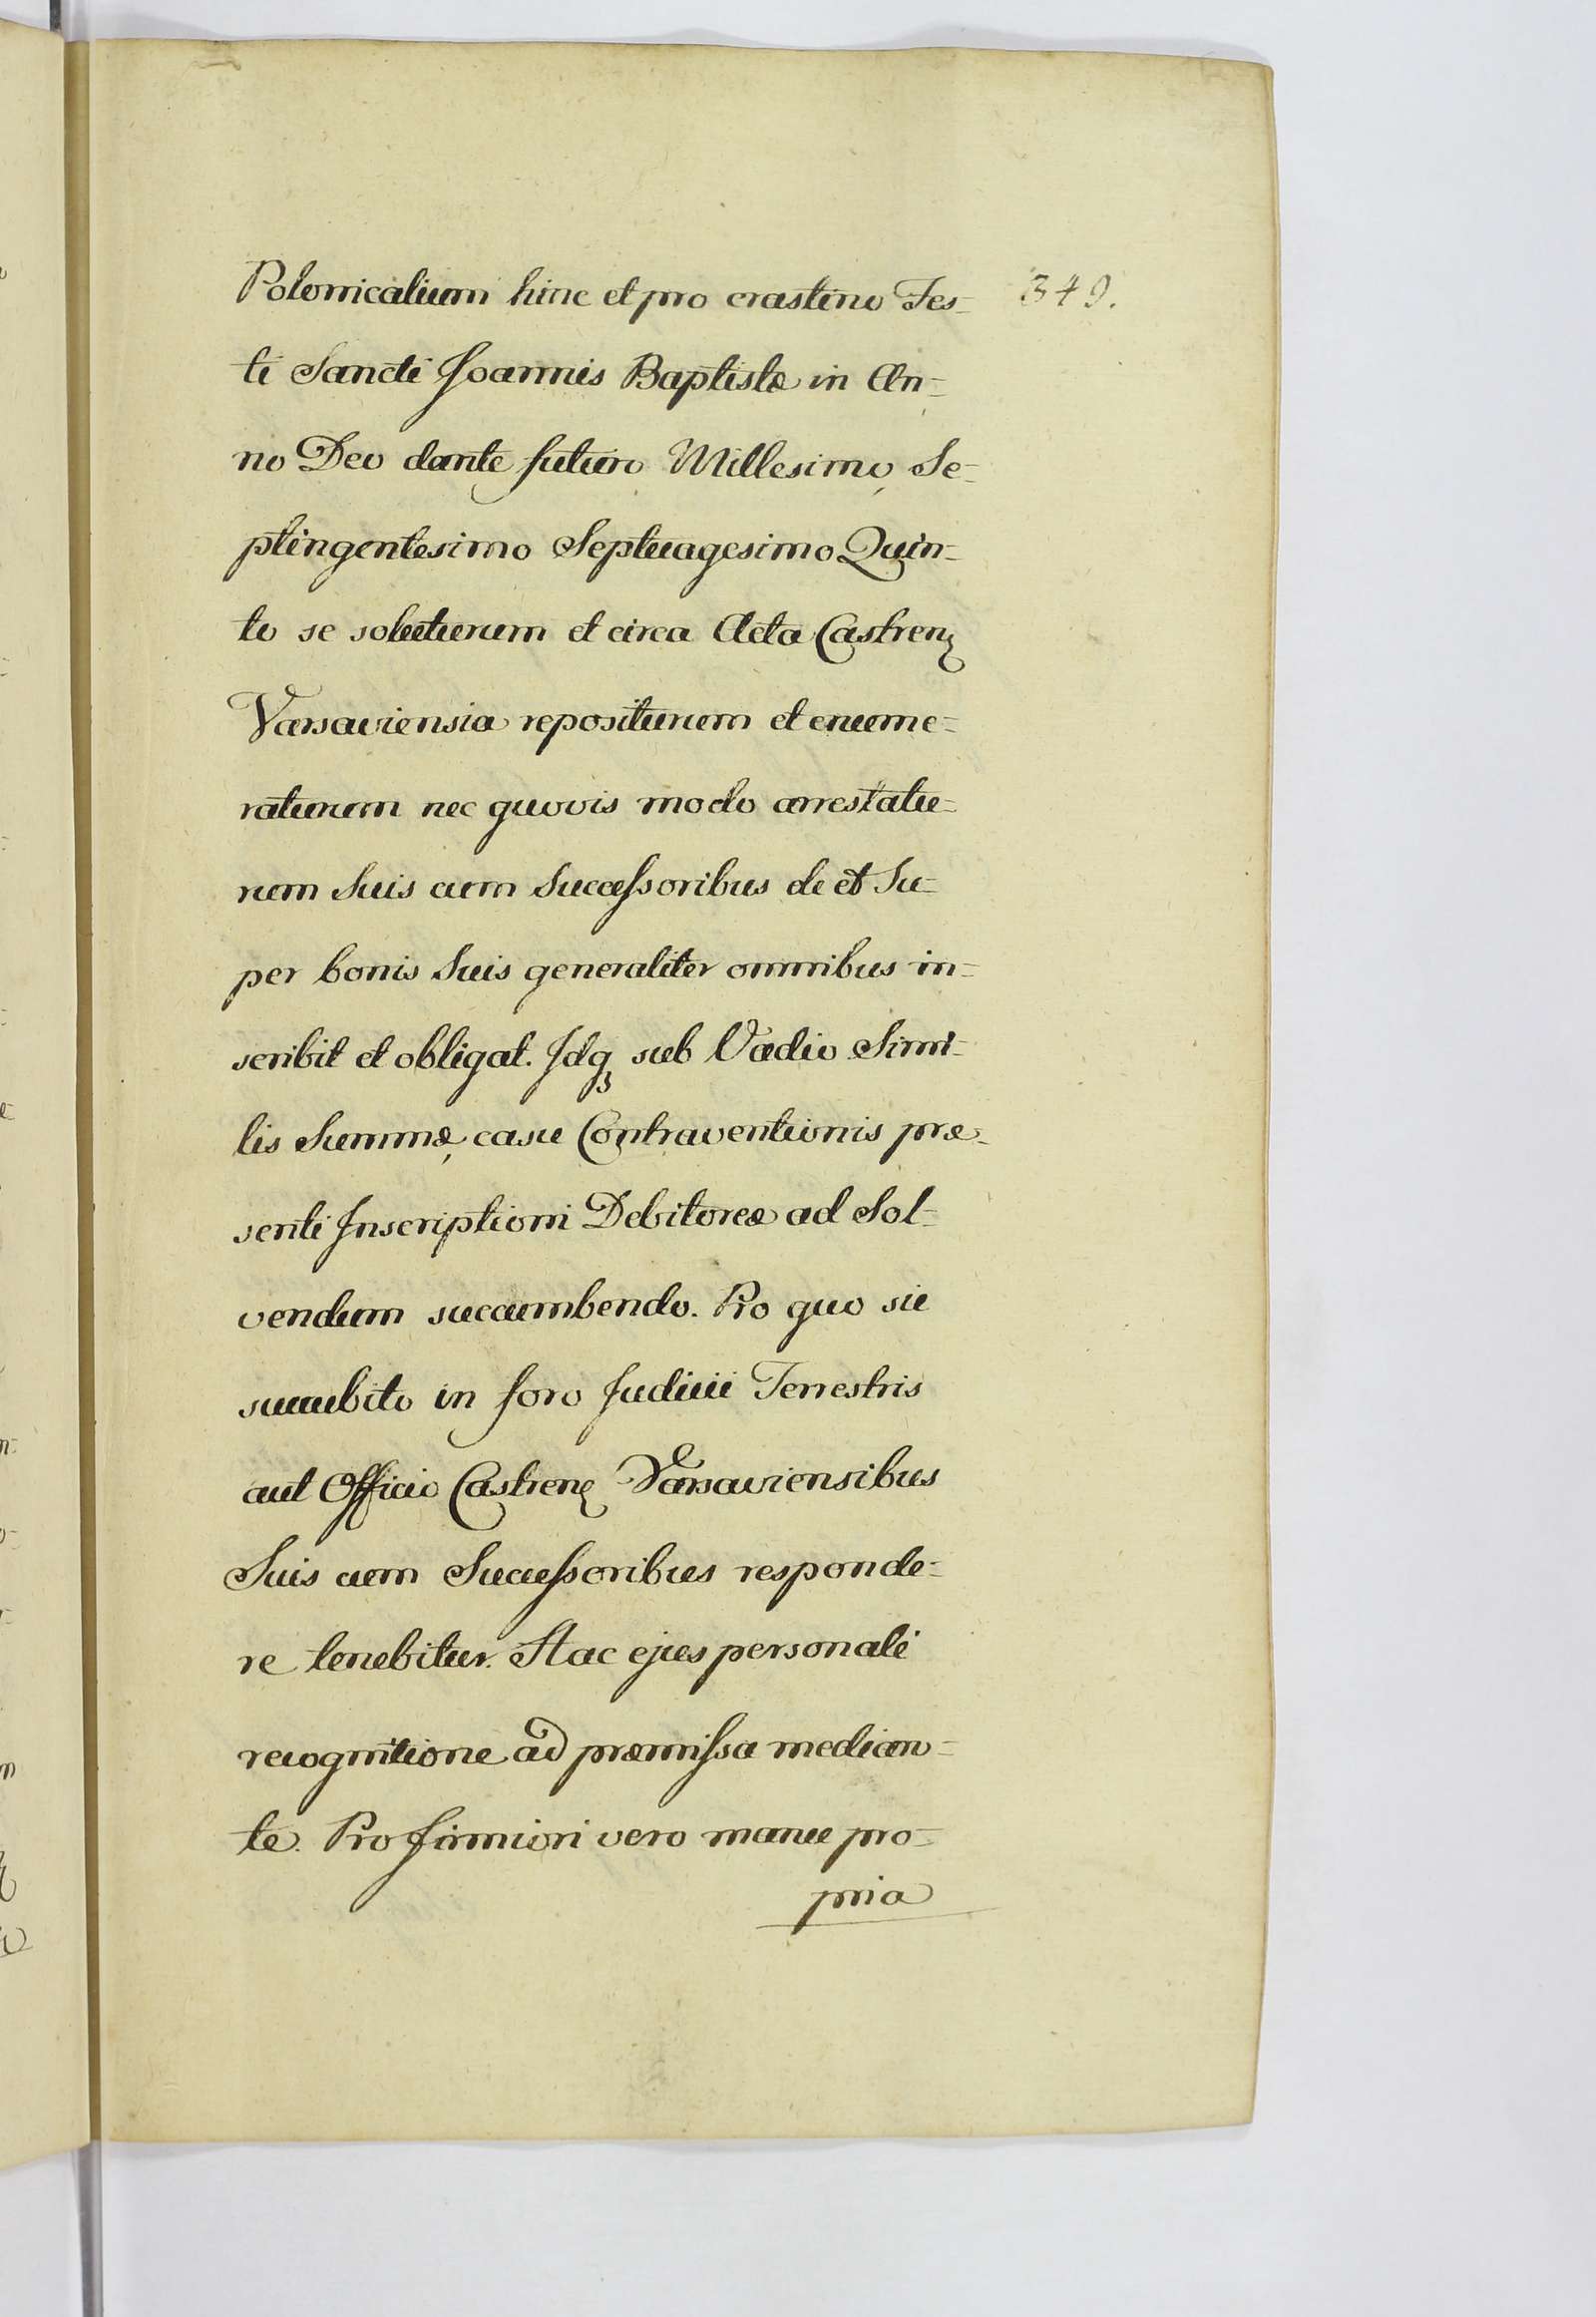 Polonicalium hinc et pro crastino Fes- 349.
ti Sancti Joannis Baptistæ in An-
no Deo dante futuro Millesimo, Se-
ptingentesimo Septuagesimo Quin-
to se soluturum et circa Acta Castren
Varsaviensia repositurum et enume-
raturum nec quovis modo arrestatu-
rum Suis cum Successoribus de et Su-
per bonis Suis generaliter omnibus in-
scribit et obligat. Idq sub Vadio Simi-
lis Summæ, casu Contraventionis præ-
senti Inscriptioni Debitoreæ ad Sol-
vendum succumbendo. Pro quo sic
succubito in foro Judicii Terrestris
aut Officio Castren Varsaviensibus
Suis cum Successoribus responde-
re tenebitur. Hac ejus personali
recognitione ad præmissa median-
te. Pro firmiori vero manu pro-
pria